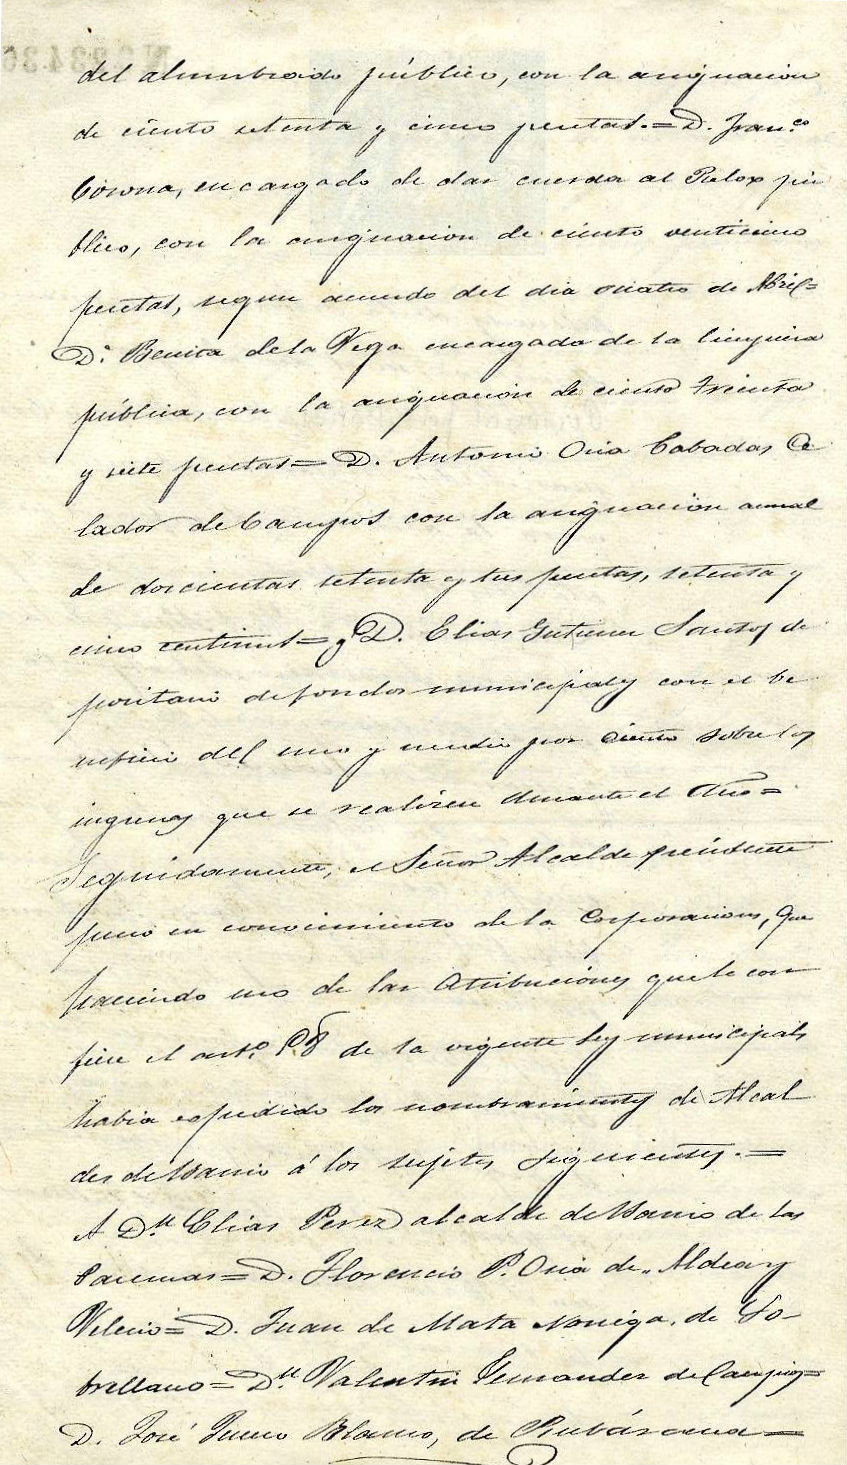 del alumbrado público, con la asignacion
de ciento setenta y cinco pesetas.= D. Franco
Corona, encargado de dar cuerda al Relox pú
blico, con la asignacion de ciento venticinco
pesetas, segun acuerdo del dia cuatro de Abril=
Da. Benita de la Vega encargada de la limpieza
pública, con la asignación de ciento treinta
y siete pesetas= D. Antonio Oria Cabadas Ce
lador de Campos con la asignación anual
de doscientas setenta y tres pesetas, setenta y
cinco centimos= y D. Elias Gutierrez Santos de
positario de fondos municipales con el be
neficio del uno y medio por ciento sobre los
ingresos que se realizen durante el Año=
Seguidamente, el Señor Alcalde presidente
puso en conocimiento de la Corporacion, que
haciendo uso de las atribuciones que le con
fiere el arto. de la vigente ley municipal,
habia expedido los nombramientos de Alcal
des de barrio á los sujetos siguientes.=
A Dn. Elias Perez alcalde de barrio de las
= D. Florencio P. Oria de Aldea y
Velecio= D. Juan de Mata Noriega, de So-
brellano= Dn. Valentin Fernandez de Campios=
D. José Blanco, de Rubárcena=